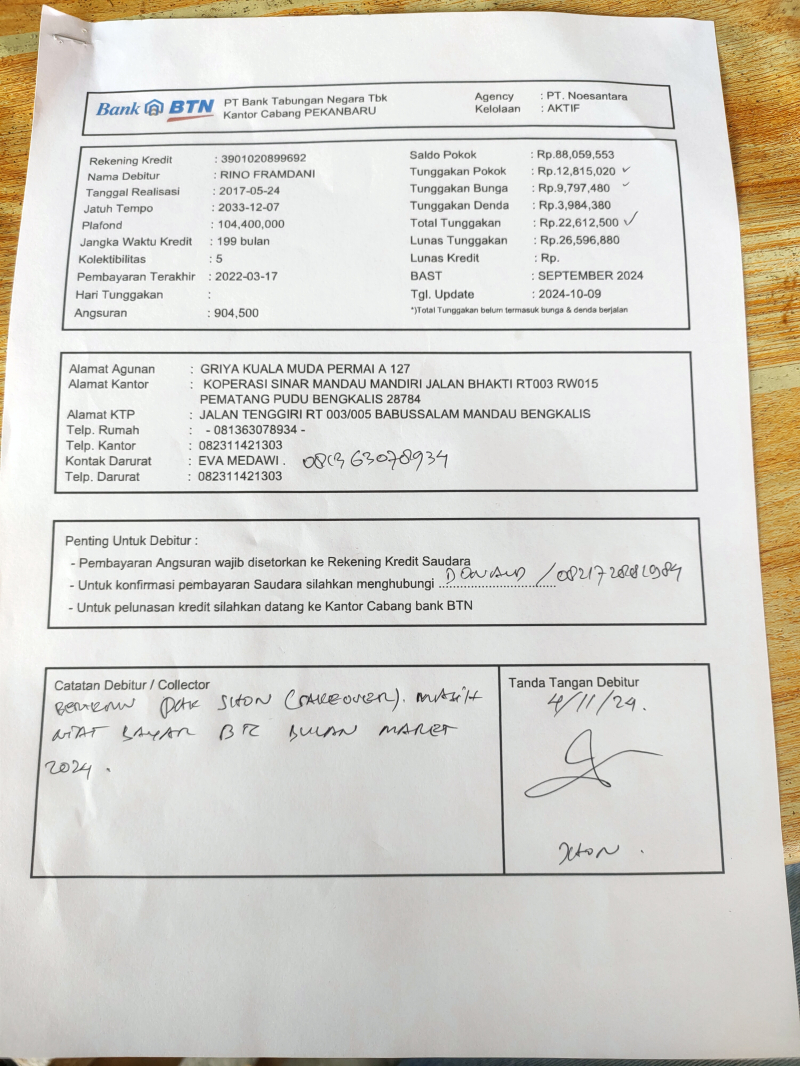 Bank BTN
PT Bank Tabungan Negara Tbk
Kantor Cabang PEKANBARU
Agency : PT. Noesantara
Kelolaan : AKTIF
Rekening Kredit : 3901020899692
Nama Debitur : RINO FRAMDANI
Tanggal Realisasi : 2017-05-24
Jatuh Tempo : 2033-12-07
Plafond : 104,400,000
Jangka Waktu Kredit : 199 bulan
Kolektibilitas : 5
Pembayaran Terakhir : 2022-03-17
Hari Tunggakan :
Angsuran : 904,500
Saldo Pokok : Rp.88,059,553
Tunggakan Pokok : Rp.12,815,020
Tunggakan Bunga : Rp.9,797,480
Tunggakan Denda : Rp.3,984,380
Total Tunggakan : Rp.22,612,500
Lunas Tunggakan : Rp.26,596,880
Lunas Kredit : Rp.
BAST : SEPTEMBER 2024
Tgl. Update : 2024-10-09
*)Total Tunggakan belum termasuk bunga & denda berjalan
Alamat Agunan : GRIYA KUALA MUDA PERMAI A 127
Alamat Kantor : KOPERASI SINAR MANDAU MANDIRI JALAN BHAKTI RT003 RW015
PEMATANG PUDU BENGKALIS 28784
Alamat KTP : JALAN TENGGIRI RT 003/005 BABUSSALAM MANDAU BENGKALIS
Telp. Rumah : - 081363078934 -
Telp. Kantor : 082311421303
Kontak Darurat : EVA MEDAWI . 081363078934
Telp. Darurat : 082311421303
Penting Untuk Debitur :
- Pembayaran Angsuran wajib disetorkan ke Rekening Kredit Saudara
- Untuk konfirmasi pembayaran Saudara silahkan menghubungi DONALD /
- Untuk pelunasan kredit silahkan datang ke Kantor Cabang bank BTN
Catatan Debitur / Collector
PAK (TAKEOVER). MASIH
NIAT BAYAR BULAN MARET
2024 .
Tanda Tangan Debitur
4/11/24.